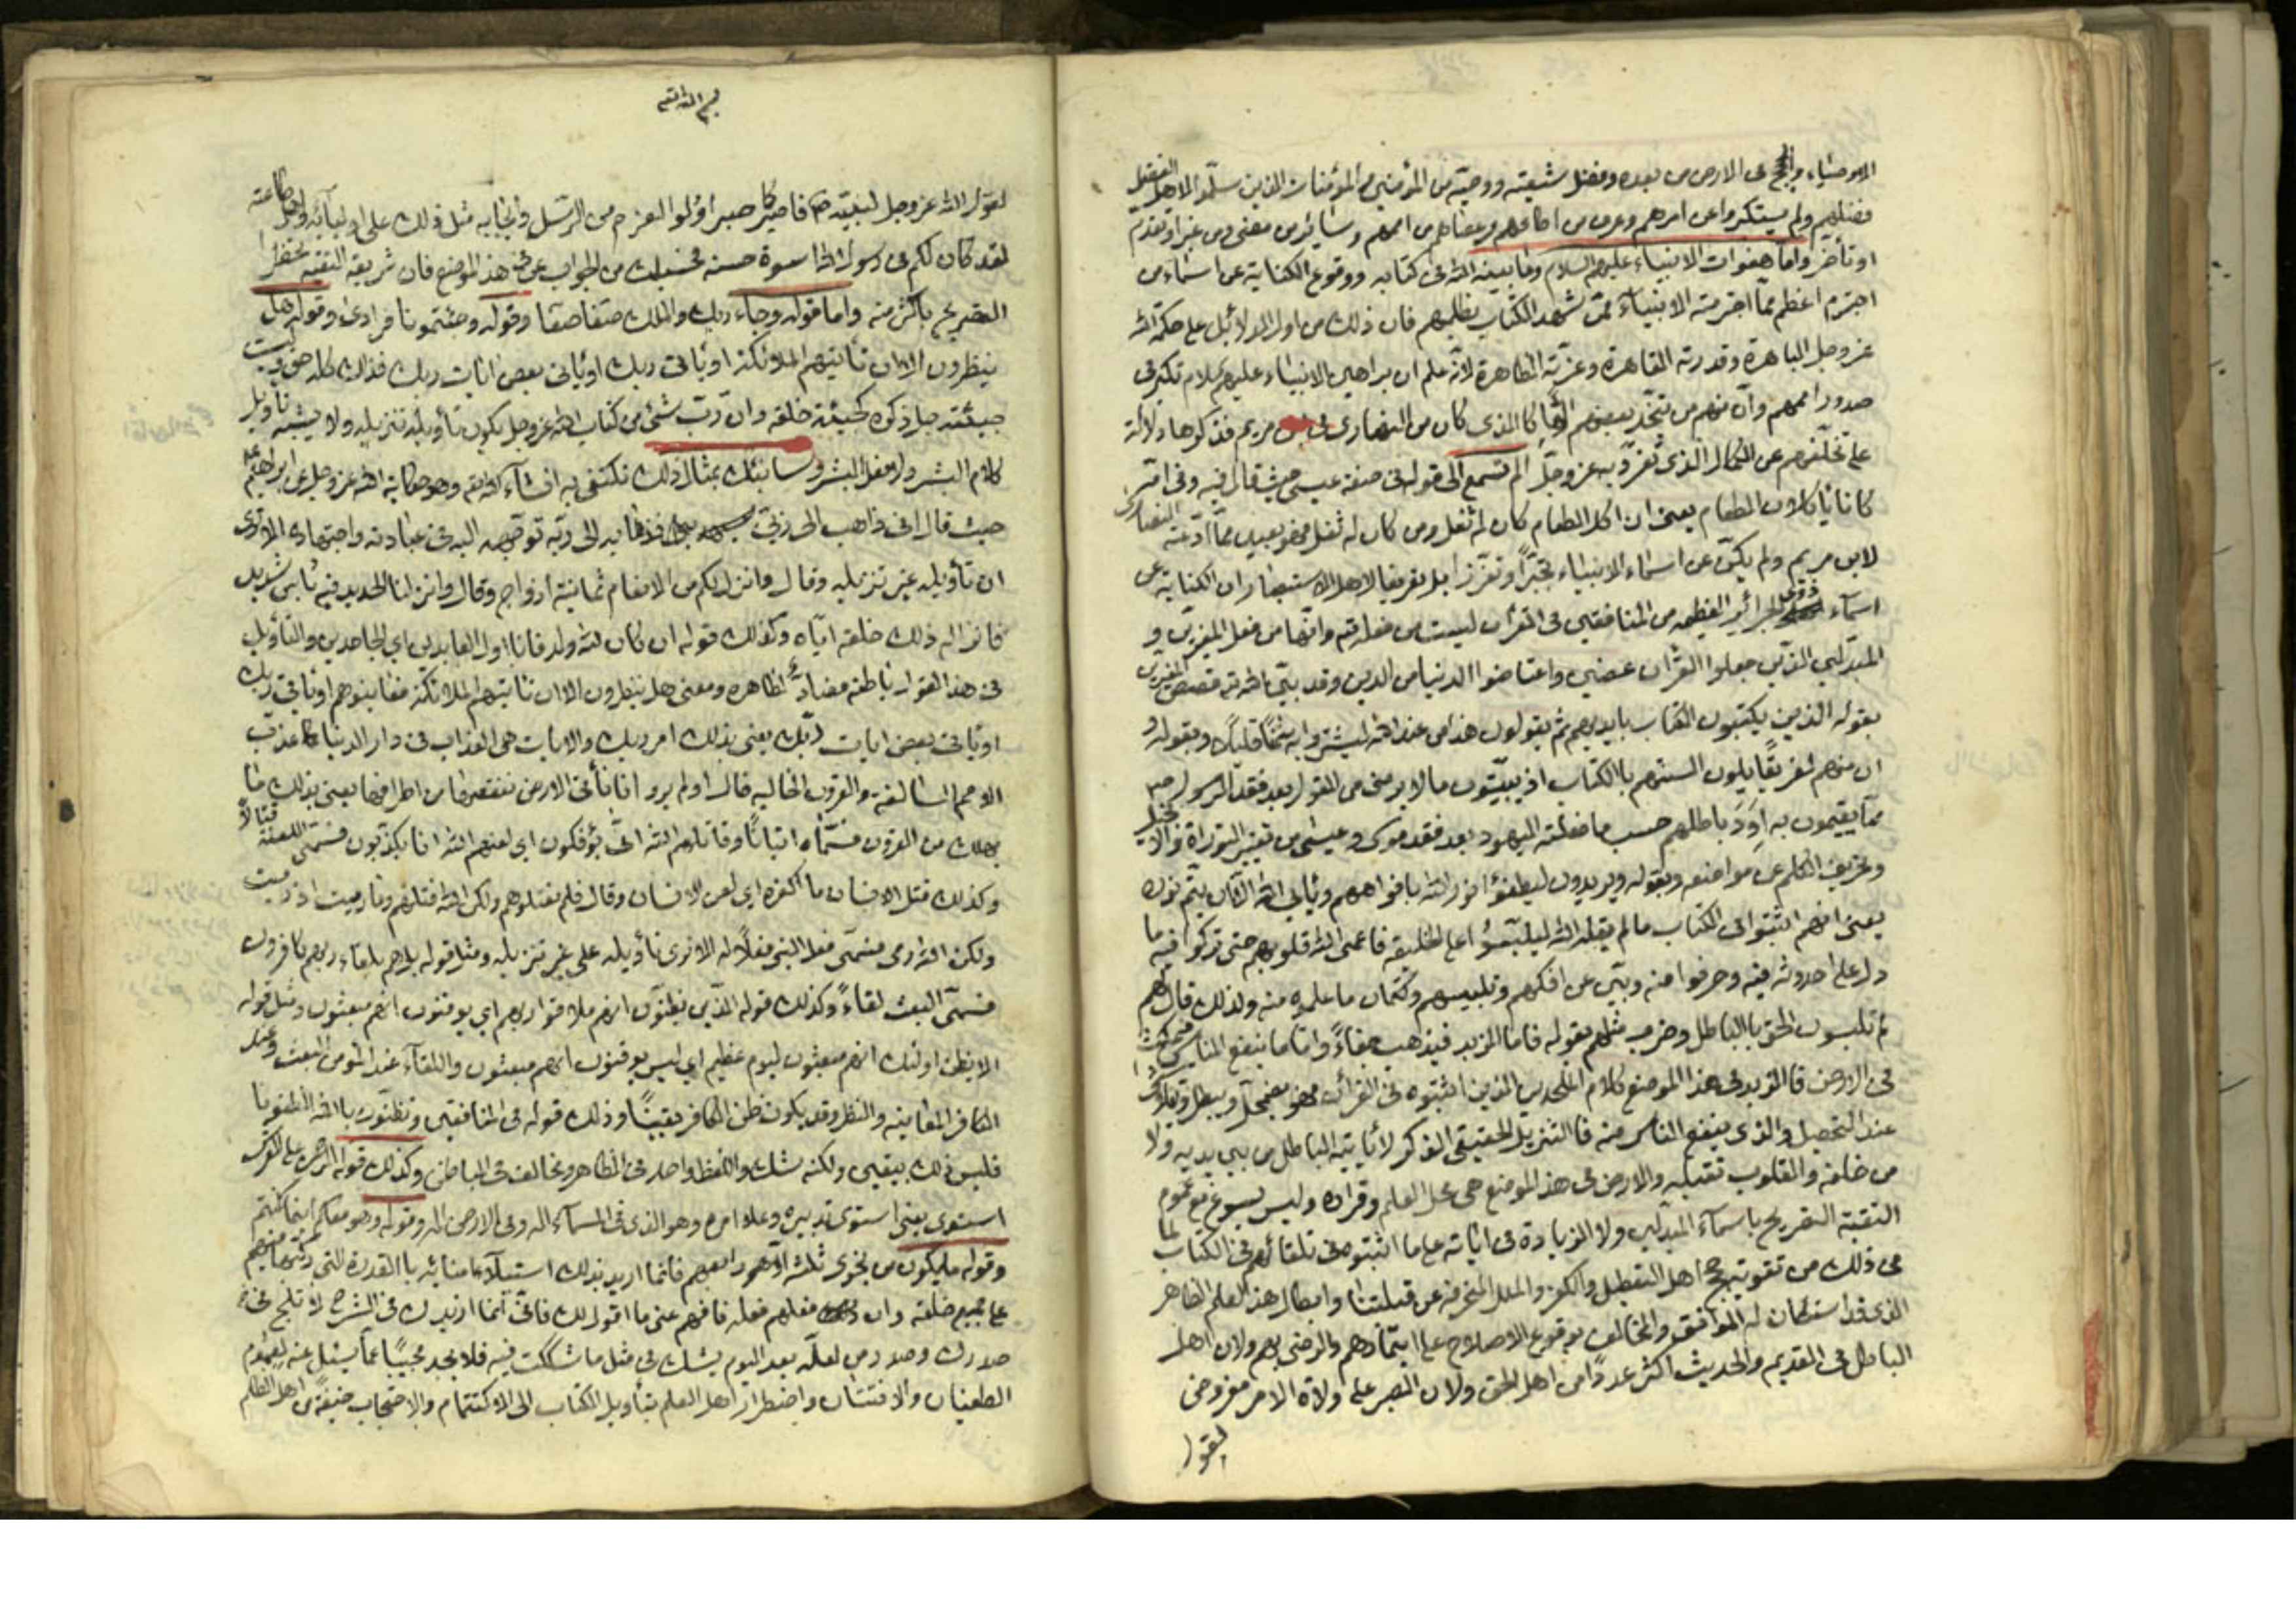 الاوصياء والحجج فى الارض من بعده وفضل شيعته ووصيه من المؤمنين والمؤمنات الذين سلموا لاهل الفضل
فضلهم ولم يستكبروا عن امرهم وعرف من اطاعهم وعصاهم من اممهم وسائر من مضى ومن غبر او تقدم
او تأخر واما هفوات الانبياء عليهم السلام وما بينه الله فى كتابه ووقوع الكناية عن اسماء من
اجترم اعظم مما اجترمته الانبياء ممن شهد الكتاب بظلمهم فان ذلك من اول الدلائل على حكمة الله
عز وجل الباهرة وقدرته القاهرة وعزته الظاهرة لانه علم ان براهين الانبياء عليهم السلام تكبر فى
صدور اممهم وان منهم من يتخذ بعضهم الها كالذى كان من النصارى فى ابن مريم فذكرها دلالة
على تخلفهم عن الكمال الذى تفرد به عز وجل الم تسمع الى قوله فى صفة عيسى حيث قال فيه وفى امه
كانا يأكلان الطعام يعنى ان من اكل الطعام كان له ثفل ومن كان له ثفل فهو بعيد مما ادعته النصارى
لابن مريم ولم يكن عن اسماء الانبياء تجبرا وتعززا بل تعريفا لاهل الاستبصار ان الكناية عن
اسماء ذوى الجرائر العظيمه من المنافقين فى القرآن ليست من فعله تع وانها من فعل المغيرين و
المبدلين الذين جعلوا القرآن عضين واعتاضوا الدنيا من الدين وقد بين الله تع قصص المغيرين
بقوله الذين يكتبون الكتاب بايديهم ثم يقولون هذا من عند الله ليشتروا به ثمنا قليلا وبقوله و
ان منهم لفريقا يلون السنتهم بالكتاب اذ يبيتون ما لا يرضى من القول بعد فقد الرسول ص
مما يقيمون به اود باطلهم حسب ما فعلته اليهود بعد فقد موسى وعيسى من تغيير التوراة والانجيل
وتحريف الكلم عن مواضعه وبقوله ويريدون ليطفئوا نور الله بافواههم ويأبى الله الا ان يتم نوره
يعنى انهم اثبتوا فى الكتاب ما لم يقله الله ليلبسوا على الخليقة فاعمى الله قلوبهم حتى تركوا فيه ما
دل على احدوثه فيه وحرفوا منه وبين عن افكهم وتلبيسهم وكتمان ما علموه منه ولذلك قال لهم
لم تلبسون الحق بالباطل وضرب مثلهم بقوله فاما الزبد فيذهب جفاء واما ما ينفع الناس فيمكث
فى الارض فالزبد فى هذا الموضع كلام الملحدين الذين اثبتوه فى القرآن فهو يضمحل ويبطل ويتلاشى
عند التحصيل والذى ينفع الناس منه فالتنزيل الحقيقى الذى لا يأتيه الباطل من بين يديه ولا
من خلفه والقلوب تقبله والارض فى هذا الموضع هى محل العلم وقراره وليس يسوغ مع عموم
التقية التصريح باسماء المبدلين ولا الزيادة فى اياته على ما اثبتوه من تلقائهم فى الكتاب لما
فى ذلك من تقوية حجج اهل التعطيل والكفر والملل المنحرفة عن قبلتنا وابطال هذا العلم الظاهر
الذى قد استكان له الموافق والمخالف بوقوع الاصطلاح على الايتمار لهم والرضى بهم ولان اهل
الباطل فى القديم والحديث اكثر عددا من اهل الحق ولان الصبر على ولاة الامر مفروض
لقول
بسم الله تع
لقول الله عز وجل لنبيه ص فاصبر كما صبر اولوا العزم من الرسل وايجابه مثل ذلك على اوليائه واهل طاعته
لقد كان لكم فى رسول الله اسوة حسنه فحسبك من الجواب عن هذا الموضع فان شريعه التقيه تحظر
التصريح باكثر منه واما قوله وجاء ربك والملك صفا صفا وقوله وجئتمونا فرادى وقوله هل
ينظرون الا ان تأتيهم الملائكة او يأتى ربك او يأتى بعض ايات ربك فذلك كله حق وليست
جيئته جل ذكره كجيئة خلقه وان رب شئ من كتاب الله عز وجل يكون تأويله على غير تنزيله ولا يشبه تأويل
كلام البشر ولا فعل البشر وسانبئك بمثال ذلك تكتفى به انشاء الله تع وهو حكاية الله عز وجل عن ابراهيم
حيث قال انى ذاهب الى ربى فذهابه الى ربه توجهه اليه فى عبادته واجتهاده الا ترى
ان تأويله غير تنزيله وقال وانزل لكم من الانعام ثمانية ازواج وقال وانزلنا الحديد فيه بأس شديد
فانزاله ذلك خلقه اياه وكذلك قوله ان كان لله ولد فانا اول العابدين اى الجاحدين والتأويل
فى هذا القول باطنه مضاد لظاهره ومعنى هل ينظرون الا ان تأتيهم الملائكة فعاينوهم او يأتى ربك
او يأتى بعض ايات ربك يعنى بذلك امر ربك والايات هى العذاب فى دار الدنيا كما عذب
الامم السالفة والقرون الخاليه قال اولم يروا انا نأتى الارض ننقصها من اطرافها يعنى بذلك ما
يهلك من القرون فسماه اتيانا وقاتلهم الله انى يؤفكون اى لعنهم الله انى يكذبون فسمى اللعنة قتالا
وكذلك قتل الانسان ما اكفره اى لعن الانسان وقال فلم تقتلوهم ولكن الله قتلهم وما رميت اذ رميت
ولكن الله رمى فسمى فعل النبى فعلا له الا ترى تأويله على غير تنزيله ومثل قوله بل هم بلقاء ربهم كافرون
فسمى البعث لقاء وكذلك قوله الذين يظنون انهم ملاقوا ربهم اى يوقنون انهم مبعثون ومثل قوله
الا يظن اولئك انهم مبعثون ليوم عظيم اى ليس يوقنون انهم مبعثون واللقاء عند المؤمن البعث وعند
الكافر المعاينه والنظر وقد يكون ظن الكافر يقينا وذلك قوله فى المنافقين وتظنون بالله الظنونا
فليس ذلك بيقين ولكنه شك واللفظ واحد فى الظاهر ومخالف فى الباطن وكذلك قوله الرحمن على العرش
استوى يعنى استوى تدبيره وعلا امره وهو الذى فى السماء اله وفى الارض اله وقوله وهو معكم اينما كنتم
وقوله ما يكون من نجوى ثلثة الا هو رابعهم فانما اريد بذلك استيلاء امنائه بالقدرة التى ركبها فيهم
على جميع خلقه وان فعلهم فعله فافهم عنى ما اقول لك فانى انما ازيدك فى الشرح لاثلج فى
صدرك وصدر من لعله بعد اليوم يشك فى مثل ما شككت فيه فلا يجد مجيبا عما يسئل عنه لعموم
الطغيان والافتتان واضطرار اهل العلم بتأويل الكتاب الى الاكتتام والاحتجاب خيفة من اهل الظلم